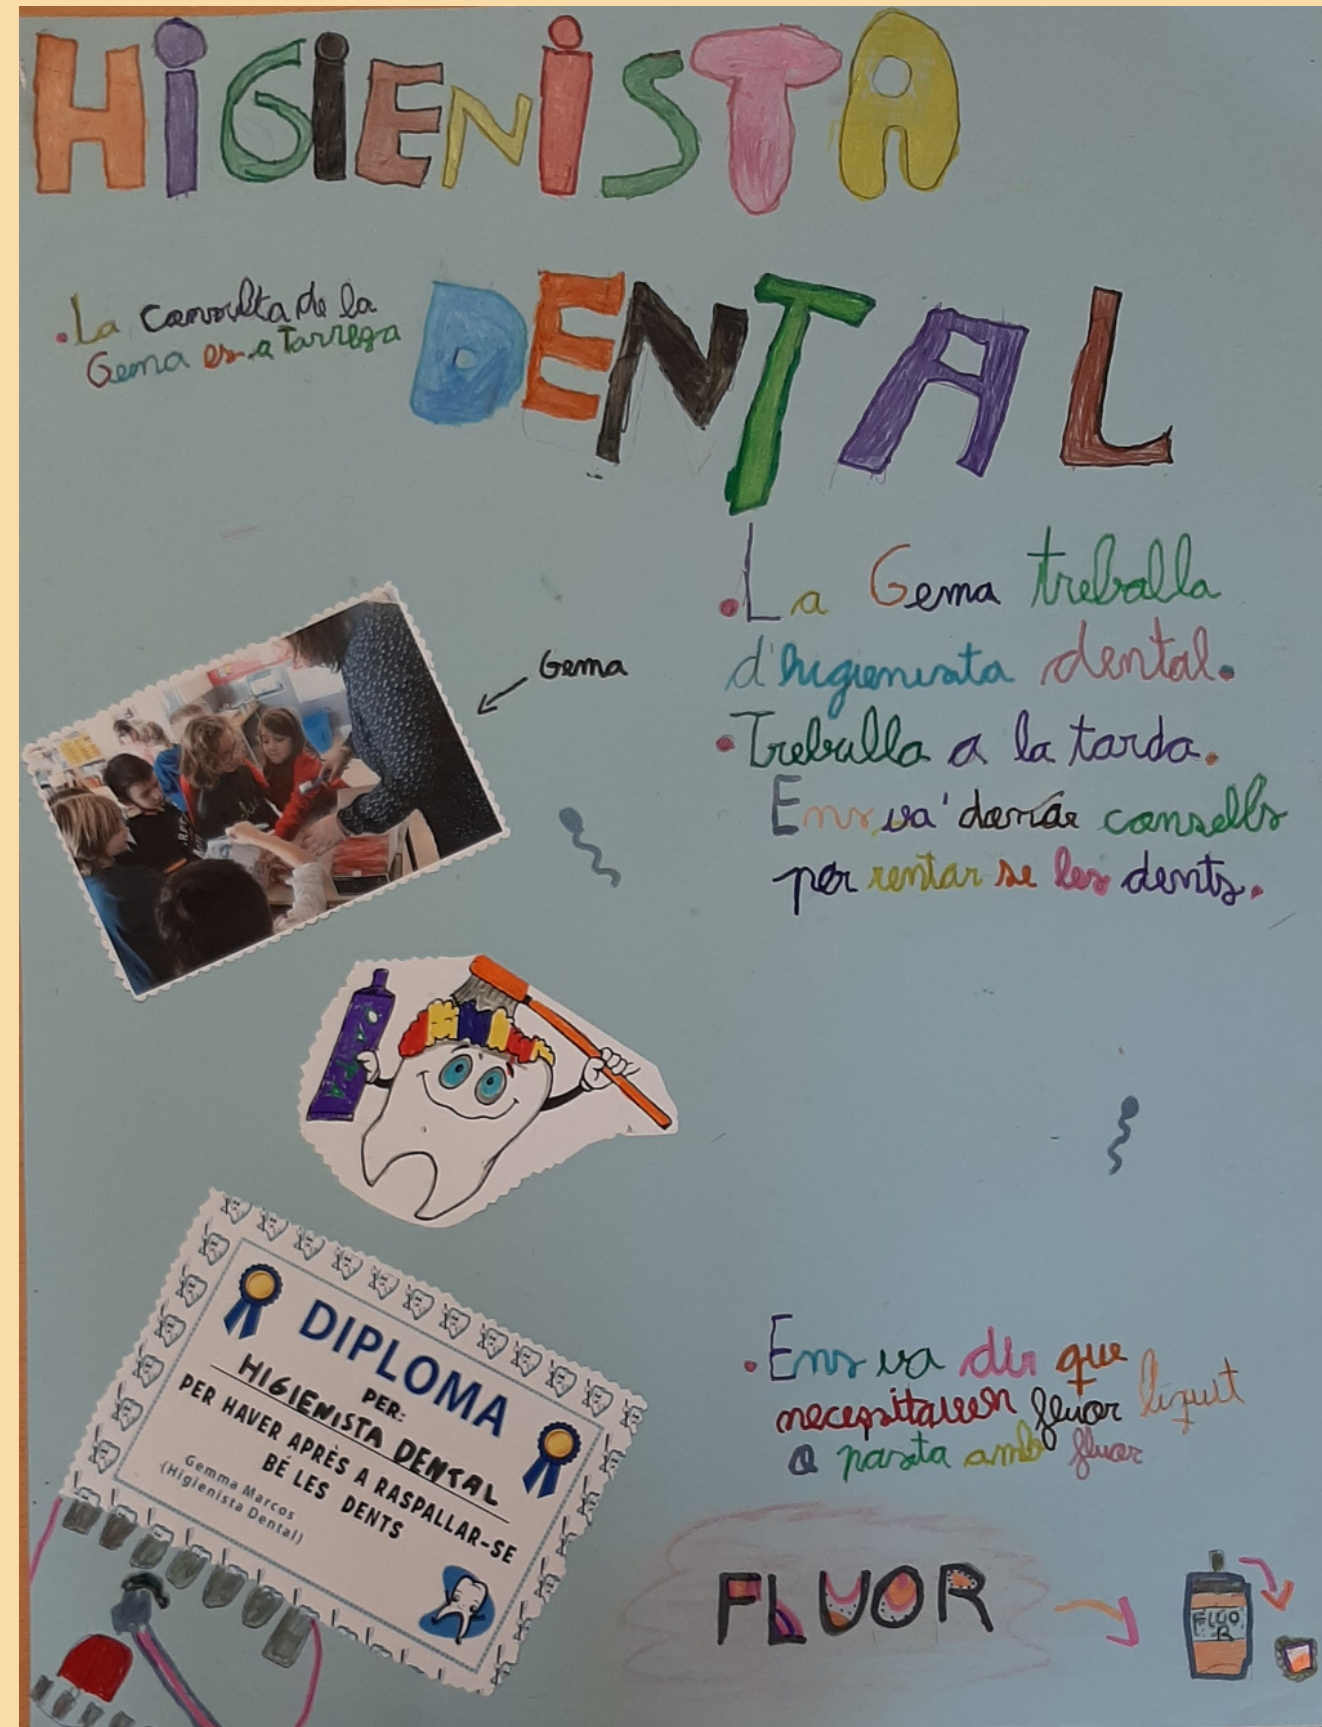 HIGIENISTA
DENTAL
.La consulta de la
Gema es a Tarrega
.La Gema treballa
d'higienista dental.
.Treballa a la tarda.
Ens va donar consells
per rentar se les dents.
Gema
PASTA
DIPLOMA
PER:
HIGIENISTA DENTAL
PER HAVER APRÈS A RASPALLAR-SE
BÉ LES DENTS
Gemma Marcos
(Higienista Dental)
.Ens va dir que
necessitavem fluor líquit
o pasta amb fluor
FLUOR
FLUO
R